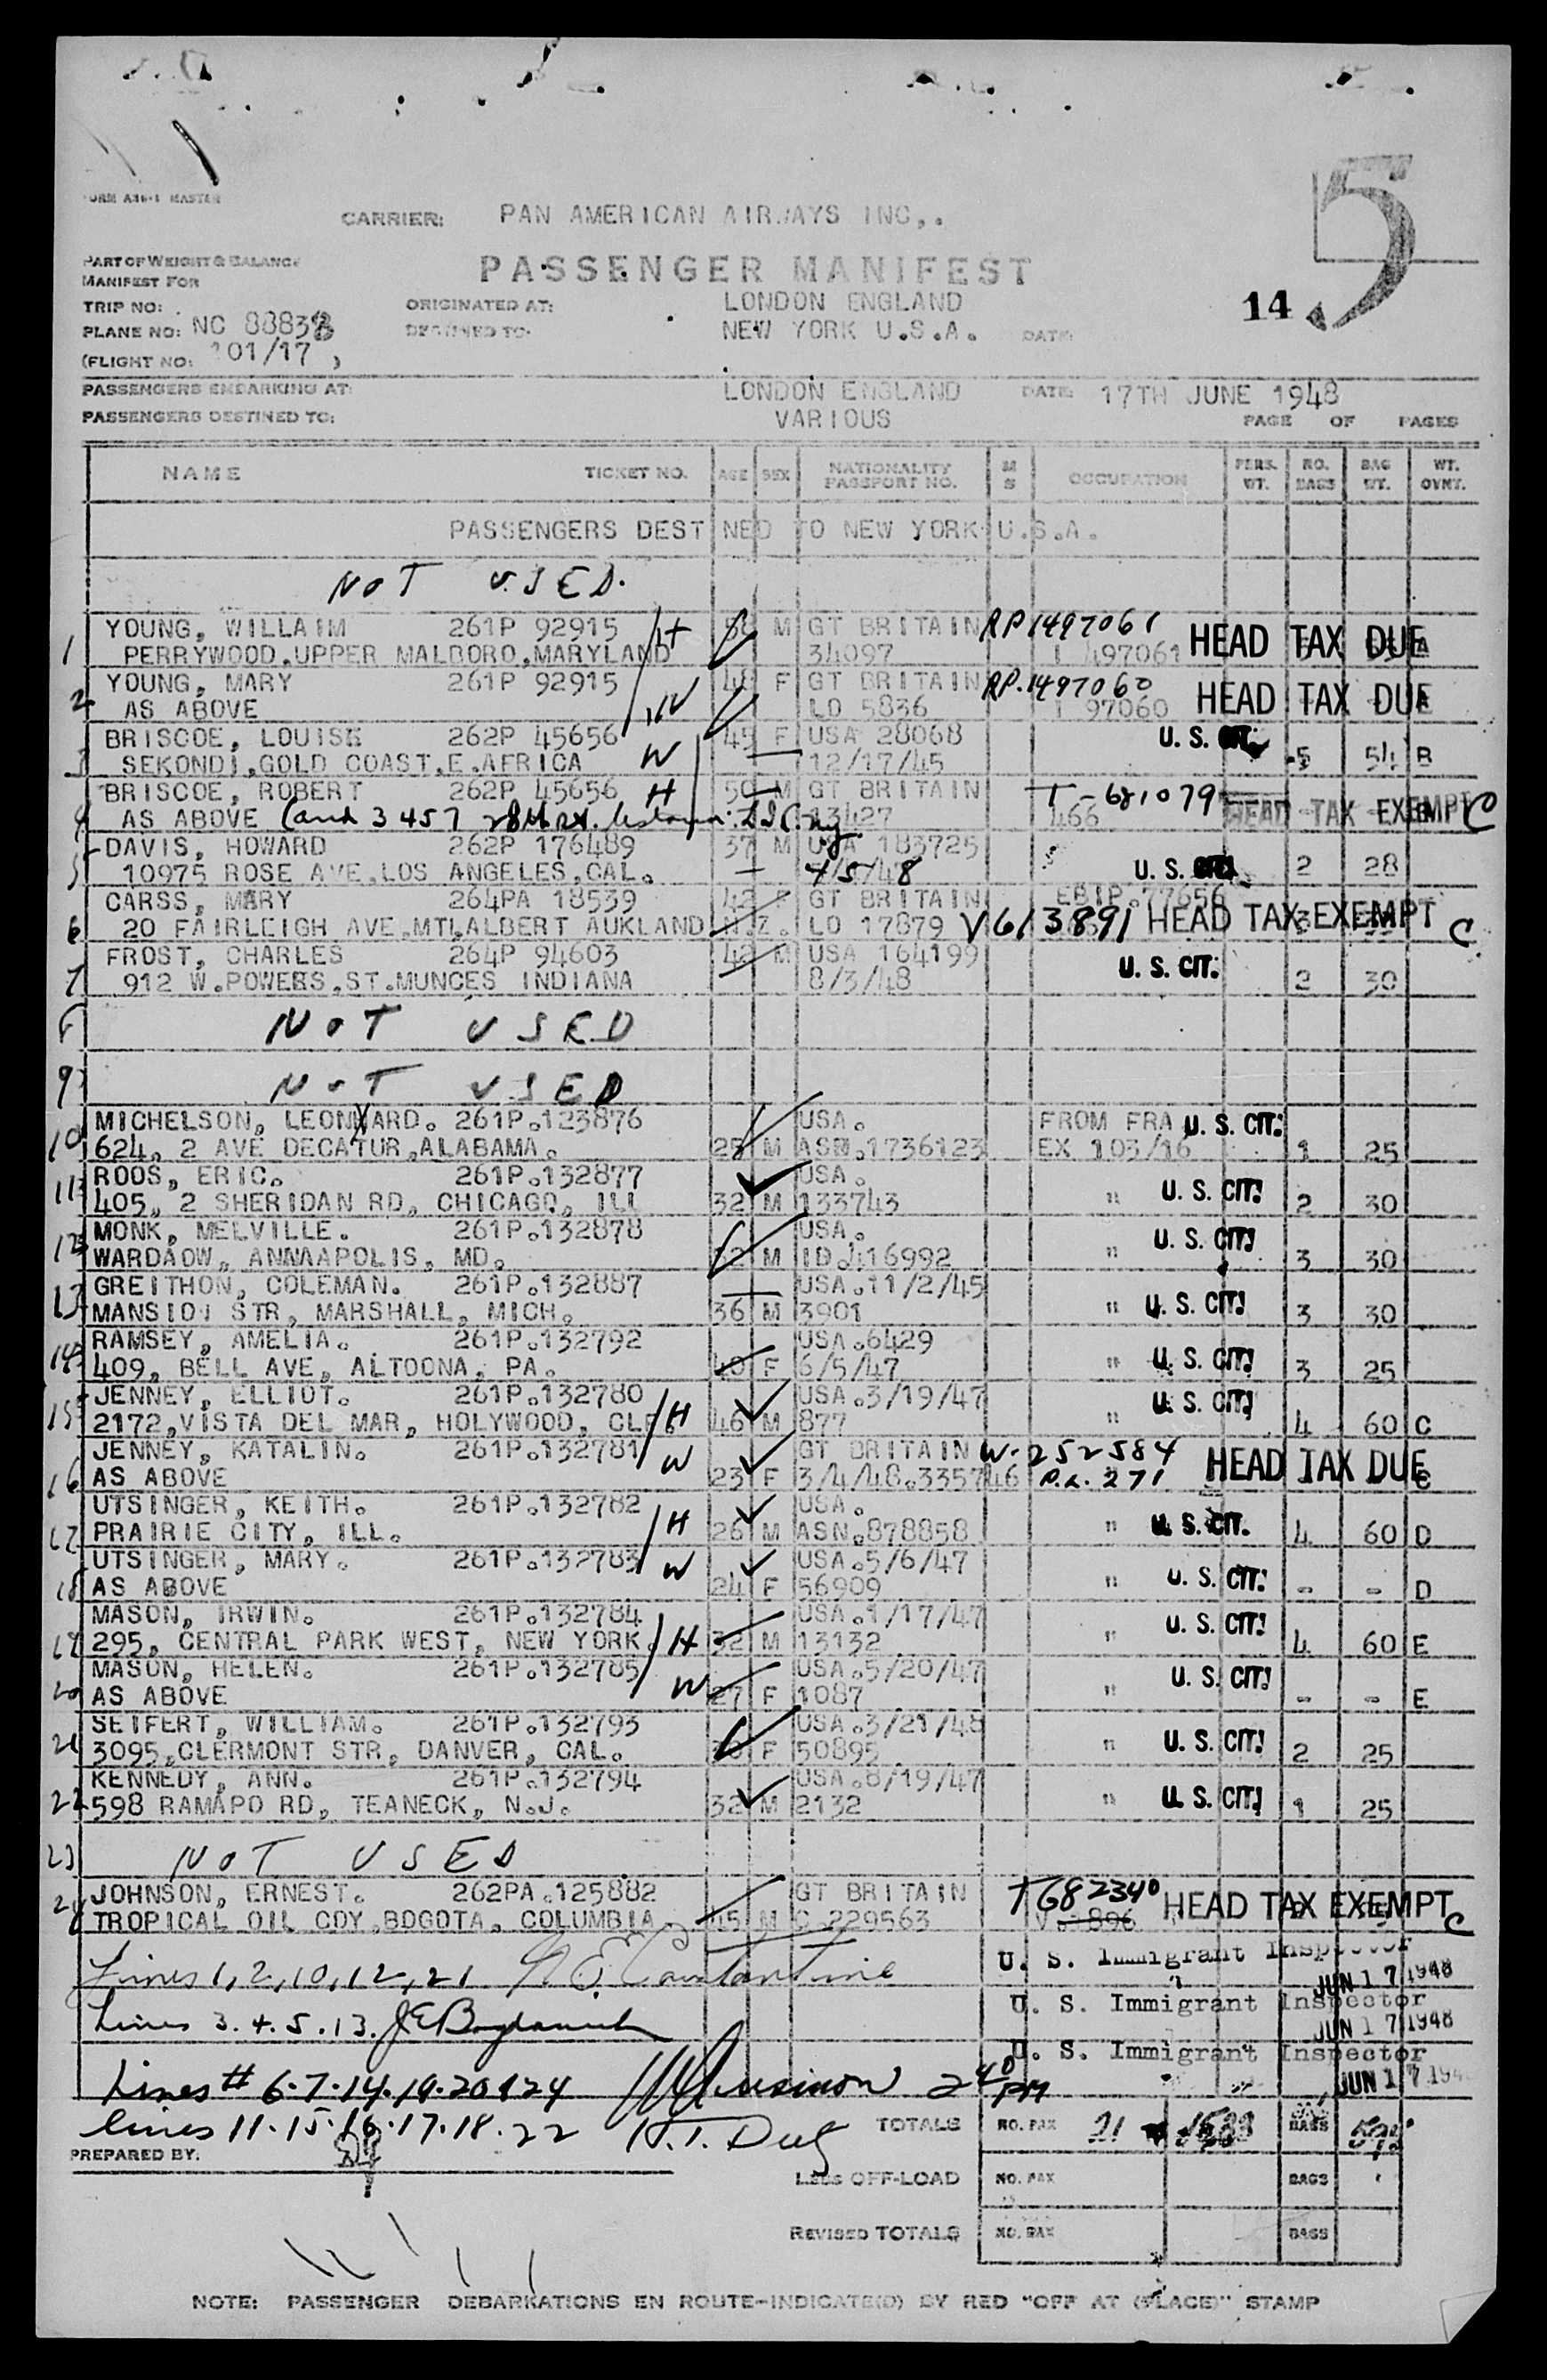 FORM A36-1 MASTER
CARRIER: PAN AMERICAN AIRWAYS INC,.
5
PART OF WEIGHT & BALANCE
MANIFEST FOR
PASSENGER MANIFEST
TRIP NO: ORIGINATED AT: LONDON ENGLAND 14
PLANE NO: NC 88838 DESTINED TO: NEW YORK U.S.A. DATE:
(FLIGHT NO: 101/17 )
PASSENGERS EMBARKING AT: LONDON ENGLAND DATE: 17TH JUNE 1948
PASSENGERS DESTINED TO: VARIOUS PAGE OF PAGES
NAME TICKET NO. AGE SEX NATIONALITY PASSPORT NO. M S OCCUPATION PERS. WT. NO. BAGS BAG WT. WT. OVNT.
PASSENGERS DESTINED TO NEW YORK U.S.A.
NOT USED.
YOUNG, WILLAIM 261P 92915 H M GT BRITAIN RP 1497061 HEAD TAX DUE
1 PERRYWOOD,UPPER MALBORO,MARYLAND 34097 I 497061 A
YOUNG, MARY 261P 92915 W 48 F GT BRITAIN RP.1497060 HEAD TAX DUE
2 AS ABOVE LO 5836 I 97060
BRISCOE, LOUISE 262P 45656 W 45 F USA 28068 U. S. CIT.
3 SEKONDI,GOLD COAST,E.AFRICA 12/17/45 5 54 B
BRISCOE, ROBERT 262P 45656 H 50 M GT BRITAIN T-681079 HEAD TAX EXEMPT C
4 AS ABOVE 13427 466
DAVIS, HOWARD 262P 176489 37 M USA 183725
5 10975 ROSE AVE,LOS ANGELES,CAL. 4/5/48 U. S. CIT. 2 28
CARSS, MARY 264PA 18539 42 F GT BRITAIN EBIP.77656
6 20 FAIRLEIGH AVE,MT,ALBERT AUKLAND N.Z. LO 17879 V613891 HEAD TAX EXEMPT C
FROST, CHARLES 264P 94603 42 M USA 164199 U. S. CIT.
7 912 W.POWERS,ST.MUNCES INDIANA 8/3/48 2 30
8 NOT USED
9 NOT USED
MICHELSON, LEONNARD. 261P.123876 USA. FROM FRA U. S. CIT.
10 624, 2 AVE DECATUR,ALABAMA. 25 M ASN.1736123 EX 103/16 1 25
ROOS, ERIC. 261P.132877 USA.
11 405, 2 SHERIDAN RD, CHICAGO, ILL 32 M 133743 " U. S. CIT. 2 30
MONK, MELVILLE. 261P.132878 USA.
12 WARDAOW, ANNAAPOLIS, MD. 32 M ID.416992 " U. S. CIT. 3 30
GREITHON, COLEMAN. 261P.132887 USA.11/2/45
13 MANSION STR, MARSHALL, MICH. 36 M 3901 " U. S. CIT. 3 30
RAMSEY, AMELIA. 261P.132792 USA.6429
14 409, BELL AVE, ALTOONA, PA. 40 F 6/5/47 " U. S. CIT. 3 25
JENNEY, ELLIOT. 261P.132780 H USA.3/19/47
15 2172,VISTA DEL MAR, HOLYWOOD, 46 M 877 " U. S. CIT. 4 60 C
JENNEY, KATALIN. 261P.132781 W GT BRITAIN W-252584 HEAD TAX DUE
16 AS ABOVE 23 F 3/4/48.335746 P.L. 271 C
UTSINGER, KEITH. 261P.132782 H USA.
17 PRAIRIE CITY, ILL. 26 M ASN.878858 " U. S. CIT. 4 60 D
UTSINGER, MARY. 261P.132783 W USA.5/6/47
18 AS ABOVE 24 F 56909 " U. S. CIT. - - D
MASON, IRWIN. 261P.132784 H USA.1/17/47
19 295, CENTRAL PARK WEST, NEW YORK. 32 M 13132 " U. S. CIT. 4 60 E
MASON, HELEN. 261P.132785 W USA.5/20/47
20 AS ABOVE 27 F 1087 " U. S. CIT. - - E
SEIFERT, WILLIAM. 261P.132793 USA.3/21/48
21 3095,CLERMONT STR, DANVER, CAL. 30 F 50895 " U. S. CIT. 2 25
KENNEDY, ANN. 261P.132794 USA.8/19/47
22 598 RAMAPO RD, TEANECK, N.J. 32 M 2132 " U. S. CIT. 1 25
23 NOT USED
JOHNSON, ERNEST. 262PA.125882 GT BRITAIN T682340 HEAD TAX EXEMPT C
24 TROPICAL OIL COY,BOGOTA, COLUMBIA. 45 M C 229563 896
Lines 1, 2, 10, 12, 21 U. S. Immigrant Inspector JUN 17 1948
Lines 3.4.5.13. U. S. Immigrant Inspector JUN 17 1948
U. S. Immigrant Inspector JUN 17 194
Lines # 6.7.14.19.20 & 24 2 40 PM
lines 11.15.16.17.18.22 TOTALS NO. PAX 21 BAGS
PREPARED BY:
LESS OFF-LOAD NO. PAX BAGS
REVISED TOTALS NO. PAX BAGS
NOTE: PASSENGER DEBARKATIONS EN ROUTE-INDICATE(D) BY RED "OFF AT (PLACE)" STAMP